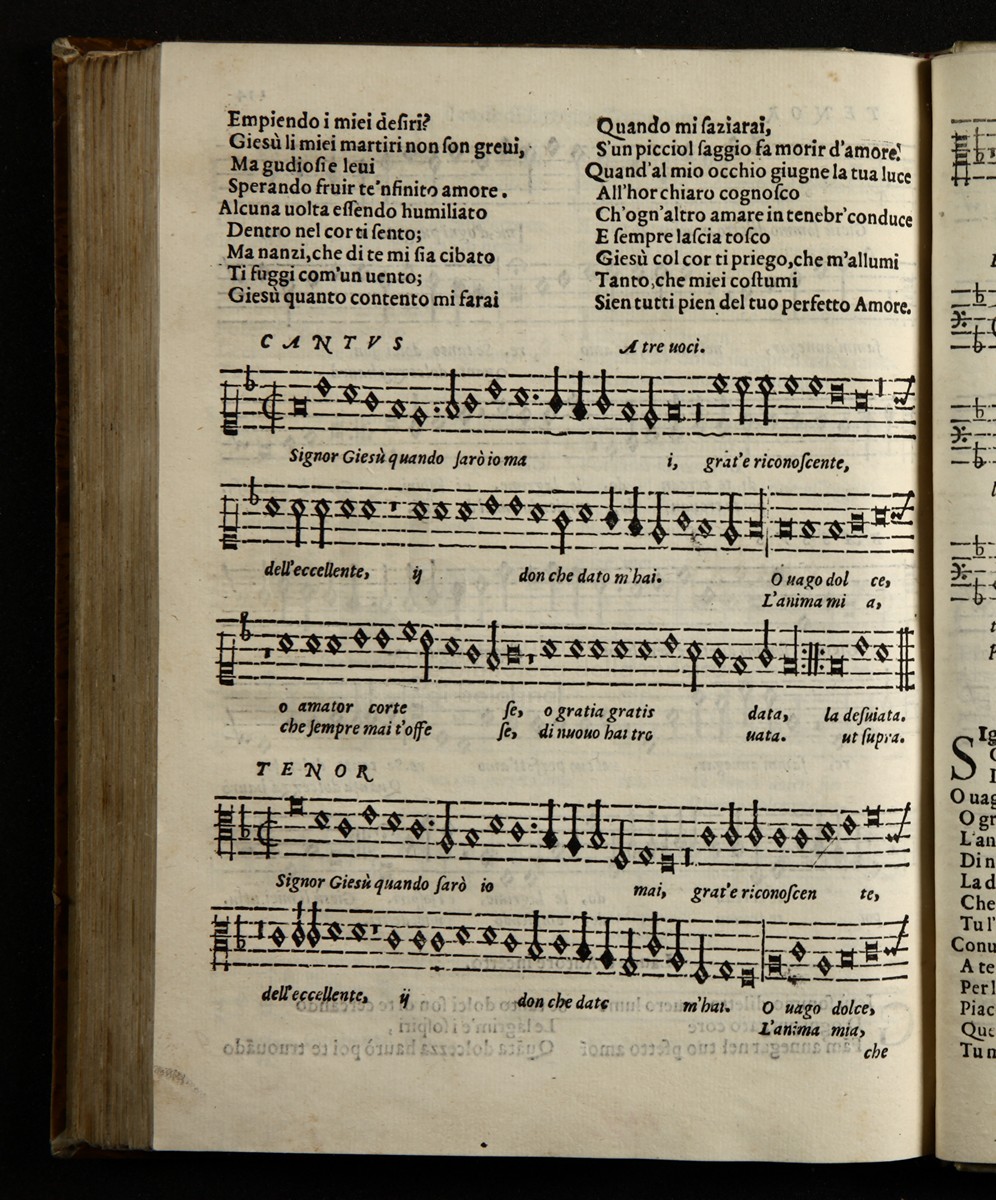 Empiendo i miei deſiri?
Gieſù li miei martiri non ſon greui,
Ma gudioſi e leui
Sperando fruir te'nfinito amore.
Alcuna uolta eſſendo humiliato
Dentro nel cor ti ſento;
Ma nanzi, che di te mi ſia cibato
Ti fuggi com'un uento;
Gieſù quanto contento mi farai
Quando mi ſaziarai,
S'un picciol ſaggio fa morir d'amore?
Quand'al mio occhio giugne la tua luce
All'hor chiaro cognoſco
Ch'ogn'altro amare in tenebr'conduce
E ſempre laſcia toſco
Gieſù col cor ti priego, che m'allumi
Tanto, che miei coſtumi
Sien tutti pien del tuo perfetto Amore.
CANTVS A tre uoci.
Signor Gieſù quando ſarò io ma i, grat'e riconoſcente,
dell'eccellente, ij don che dato m'hai. O uago dol ce,
L'anima mi a,
o amator corte ſe, o gratia gratis data, la deſuiata.
che ſempre mai t'offe ſe, di nuouo hai tro uata. ut ſupra.
TENOR
Signor Gieſù quando ſarò io mai, grat'e riconoſcen te,
dell'eccellente, ij don che dato m'hai. O uago dolce,
L'anima mia,
che
SIg
O uag
O gr
L'an
Di n
La d
Che
Tu l'
Conu
A te
Per l
Piac
Que
Tu n